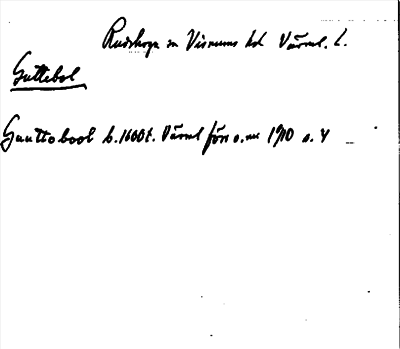 Rudskoga sn Visnums hd Värml. l.
Guttebol
Gunttobool b. 1600t. Värml förr o. nu 1910 s. 4